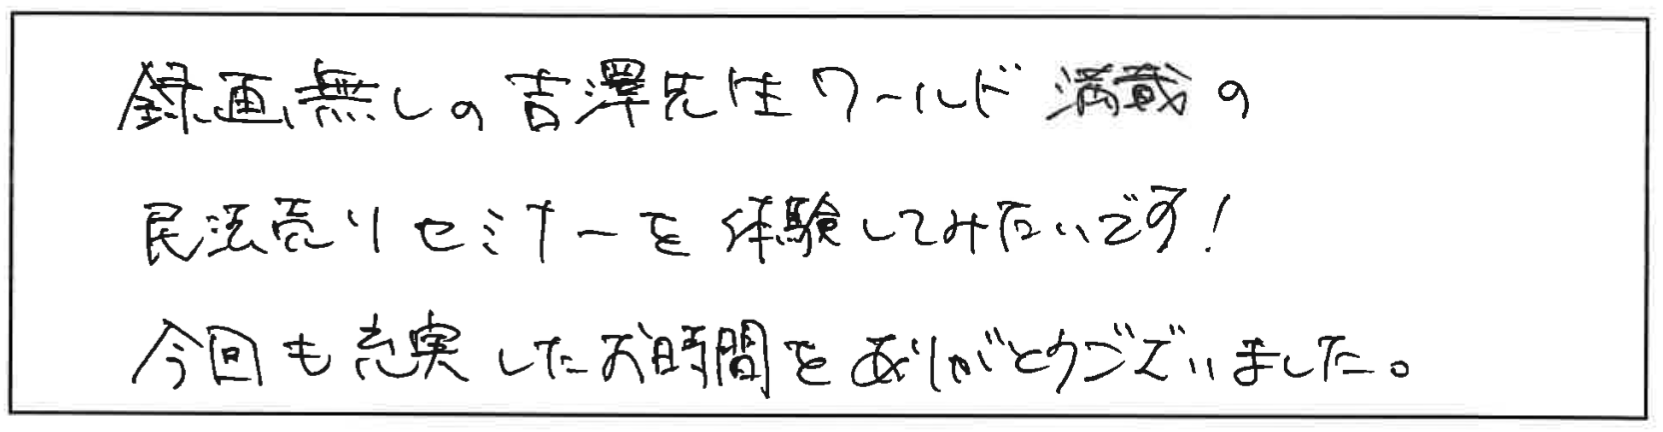 録画無しの吉澤先生ワールド満載の
民法売りセミナーを体験してみたいです!
今回も充実したお時間をありがとうございました。